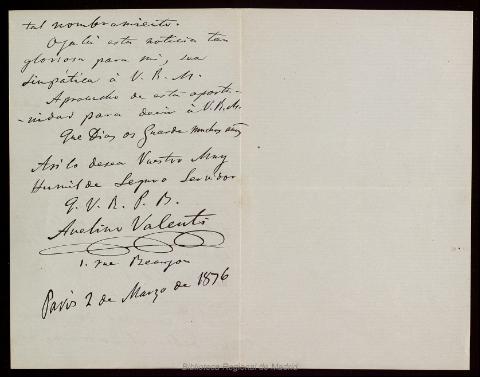 tal nombramiento.
Ojalá esta noticia tan
gloriosa para mi, sea
simpática á V. R. M.
Aprovecho de esta oportu-
-nidad para decir á V. R. M.
Que Dios os Guarde muchos años
Asi lo desea Vuestro Muy
Humilde Seguro Servidor
Q. V. R. P. B.
Avelino Valenti
1. rue Beaujon
Paris 2 de Marzo de 1876
Biblioteca Regional de Madrid